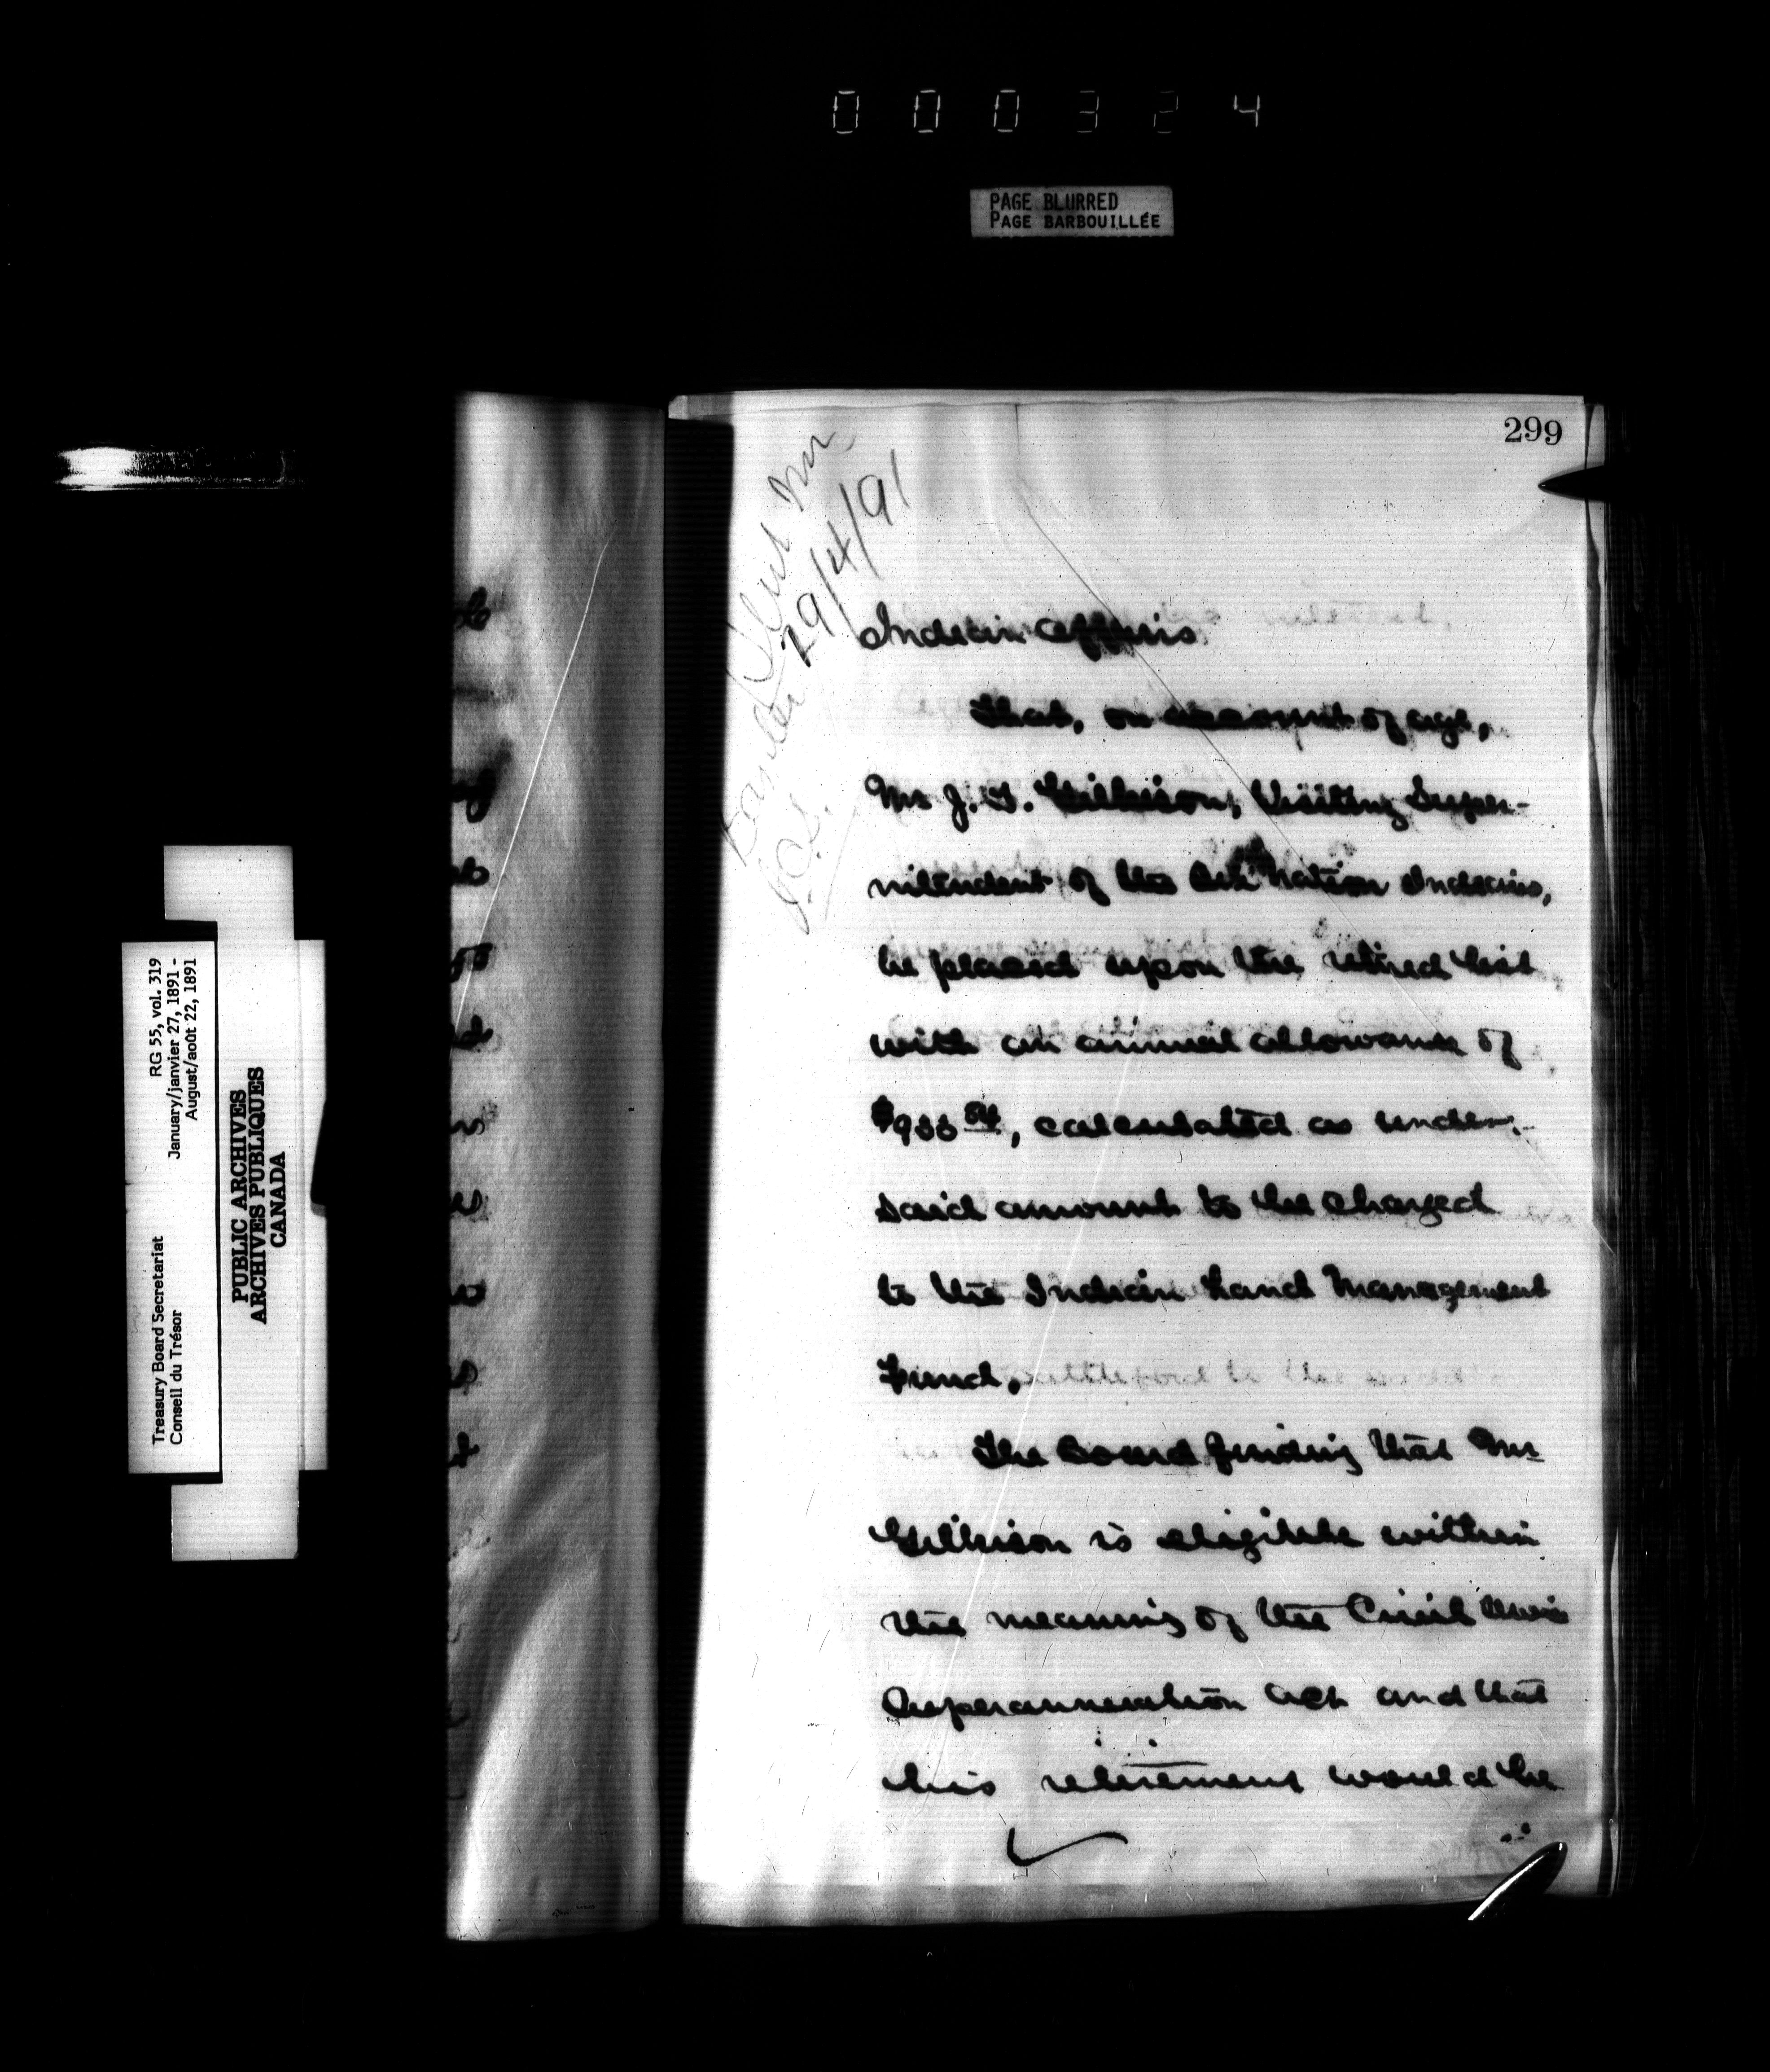 000324
PAGE BLURRED
PAGE BARBOUILLÉE
299
29/4/91
Indian Affairs.
That, on account of age,
Mr J. T. Gilkison, Visiting Super-
intendent of the Six Nation Indians,
be placed upon the retired list
with an annual allowance of
$933, calculated as under:-
said amount to be charged
to the Indian Land Management
Fund.
The Board finding that Mr
Gilkison is eligible within
the meaning of the Civil Service
Superannuation Act and that
his retirement would be
RG 55, vol. 319
January/janvier 27, 1891 -
August/août 22, 1891
Treasury Board Secretariat
Conseil du Trésor
PUBLIC ARCHIVES
ARCHIVES PUBLIQUES
CANADA